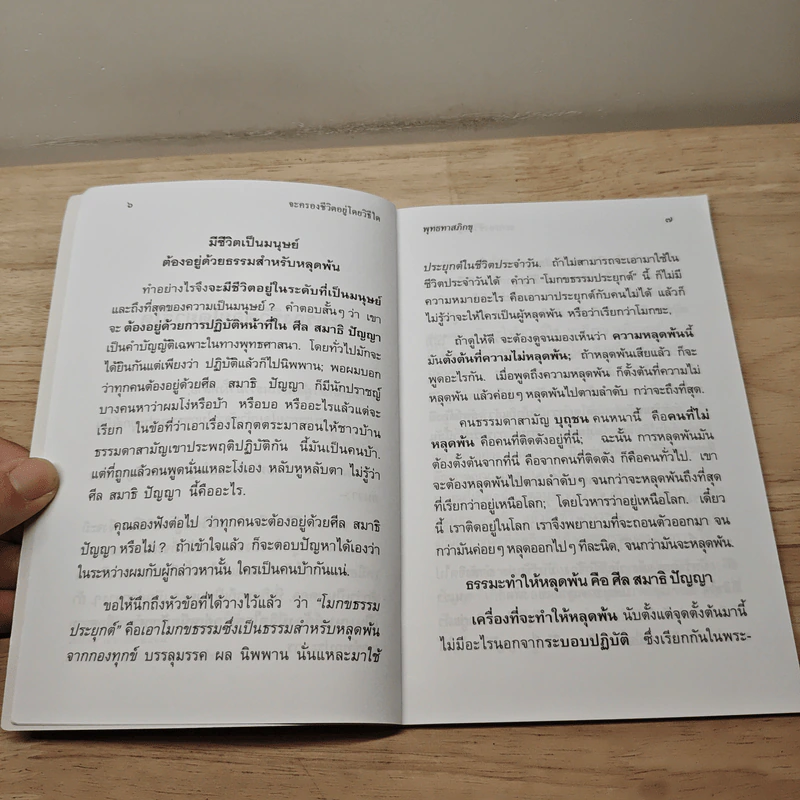 ๖
จะครองชีวิตอยู่โดยวิธีใด
มีชีวิตเป็นมนุษย์
ต้องอยู่ด้วยธรรมสำหรับหลุดพ้น
ทำอย่างไรจึงจะมีชีวิตอยู่ในระดับที่เป็นมนุษย์
และถึงที่สุดของความเป็นมนุษย์ ? คำตอบสั้นๆ ว่า เขา
จะ ต้องอยู่ด้วยการปฏิบัติหน้าที่ใน ศีล สมาธิ ปัญญา
เป็นคำบัญญัติเฉพาะในทางพุทธศาสนา. โดยทั่วไปมักจะ
ได้ยินกันแต่เพียงว่า ปฏิบัติแล้วก็ไปนิพพาน; พอผมบอก
ว่าทุกคนต้องอยู่ด้วยศีล สมาธิ ปัญญา ก็มีนักปราชญ์
บางคนหาว่าผมโง่หรือบ้า หรือบอ หรืออะไรแล้วแต่จะ
เรียก ในข้อที่ว่าเอาเรื่องโลกุตตระมาสอนให้ชาวบ้าน
ธรรมดาสามัญเขาประพฤติปฏิบัติกัน นี้มันเป็นคนบ้า.
แต่ที่ถูกแล้วคนพูดนั่นแหละโง่เอง หลับหูหลับตา ไม่รู้ว่า
ศีล สมาธิ ปัญญา นี้คืออะไร.
คุณลองฟังต่อไป ว่าทุกคนจะต้องอยู่ด้วยศีล สมาธิ
ปัญญา หรือไม่ ? ถ้าเข้าใจแล้ว ก็จะตอบปัญหาได้เองว่า
ในระหว่างผมกับผู้กล่าวหานั้น ใครเป็นคนบ้ากันแน่.
ขอให้นึกถึงหัวข้อที่ได้วางไว้แล้ว ว่า “โมกขธรรม
ประยุกต์” คือเอาโมกขธรรมซึ่งเป็นธรรมสำหรับหลุดพ้น
จากกองทุกข์ บรรลุมรรค ผล นิพพาน นั่นแหละมาใช้
พุทธทาสภิกขุ
๗
ประยุกต์ในชีวิตประจำวัน. ถ้าไม่สามารถจะเอามาใช้ใน
ชีวิตประจำวันได้ คำว่า “โมกขธรรมประยุกต์” นี้ ก็ไม่มี
ความหมายอะไร คือเอามาประยุกต์กับคนไม่ได้ แล้วก็
ไม่รู้ว่าจะให้ใครเป็นผู้หลุดพ้น หรือว่าเรียกว่าโมกขะ.
ถ้าดูให้ดี จะต้องดูจนมองเห็นว่า ความหลุดพ้นนี้
มันตั้งต้นที่ความไม่หลุดพ้น; ถ้าหลุดพ้นเสียแล้ว ก็จะ
พูดอะไรกัน. เมื่อพูดถึงความหลุดพ้น ก็ตั้งต้นที่ความไม่
หลุดพ้น แล้วค่อยๆ หลุดพ้นไปตามลำดับ กว่าจะถึงที่สุด.
คนธรรมดาสามัญ บุถุชน คนหนานี้ คือคนที่ไม่
หลุดพ้น คือคนที่ติดตังอยู่ที่นี่; ฉะนั้น การหลุดพ้นมัน
ต้องตั้งต้นจากที่นี่ คือจากคนที่ติดตัง ก็คือคนทั่วไป. เขา
จะต้องหลุดพ้นไปตามลำดับๆ จนกว่าจะหลุดพ้นถึงที่สุด
ที่เรียกว่าอยู่เหนือโลก; โดยโวหารว่าอยู่เหนือโลก. เดี๋ยว
นี้ เราติดอยู่ในโลก เราจึงพยายามที่จะถอนตัวออกมา จน
กว่ามันค่อยๆ หลุดออกไปๆ ทีละนิด, จนกว่ามันจะหลุดพ้น.
ธรรมะทำให้หลุดพ้น คือ ศีล สมาธิ ปัญญา
เครื่องที่จะทำให้หลุดพ้น นับตั้งแต่จุดตั้งต้นมานี้
ไม่มีอะไรนอกจากระบอบปฏิบัติ ซึ่งเรียกกันในพระ-